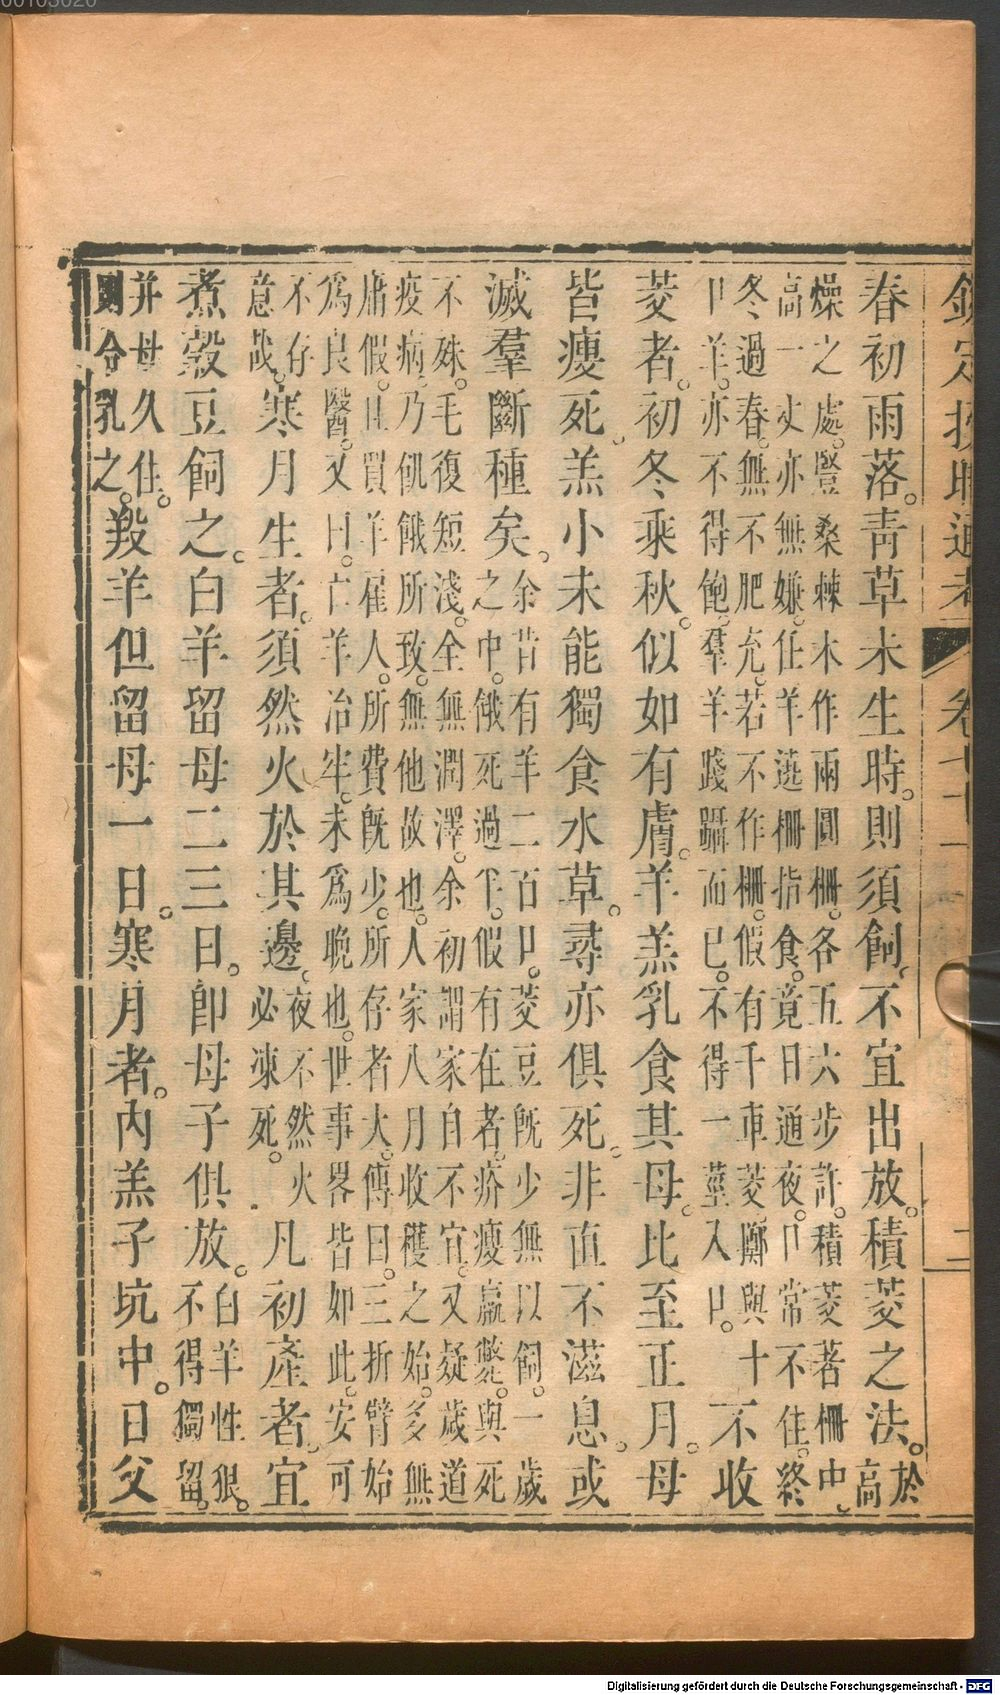 欽定授時通考 卷七十二 二
春初雨落。青草未生時。則須飼。不宜出放。積茭之法。於
高
燥之處。豎桑棘木作兩圓柵。各五六步許。積茭著柵中。
高一丈亦無嫌。任羊遶柵指食。竟日通夜。口常不住。終
冬過春。無不肥充。若不作柵。假有千車茭。鄭與十
口羊。亦不得飽。羣羊踐躡而已。不得一莖入口。
不收
茭者。初冬乘秋。似如有膚。羊羔乳食其母。比至正月。母
皆瘦死。羔小未能獨食水草。尋亦俱死。非直不滋息。或
滅羣斷種矣。
余昔有羊二百口。茭豆旣少無以飼。一歲
之中。餓死過半。假有在者。疥瘦羸斃。與死
不殊。毛復短淺。全無潤澤。余初謂家自不宜。又疑歲道
疫病。乃飢餓所致。無他故也。人家八月收穫之始。多無
庸假。且買羊雇人。所費旣少。所存者大。傳曰。三折臂始
爲良醫。又曰。亡羊治牢。未爲晚也。世事畧皆如此。安可
不存
意哉。
寒月生者。須然火於其邊。
夜不然火
必凍死。
凡初產者。宜
煮穀豆飼之。白羊留母二三日。卽母子俱放。
白羊性狠。
不得獨留。
并母久住。
則令乳之。
羖羊但留母一日。寒月者。內羔子坑中。日父
Digitalisierung gefördert durch die Deutsche Forschungsgemeinschaft - DFG